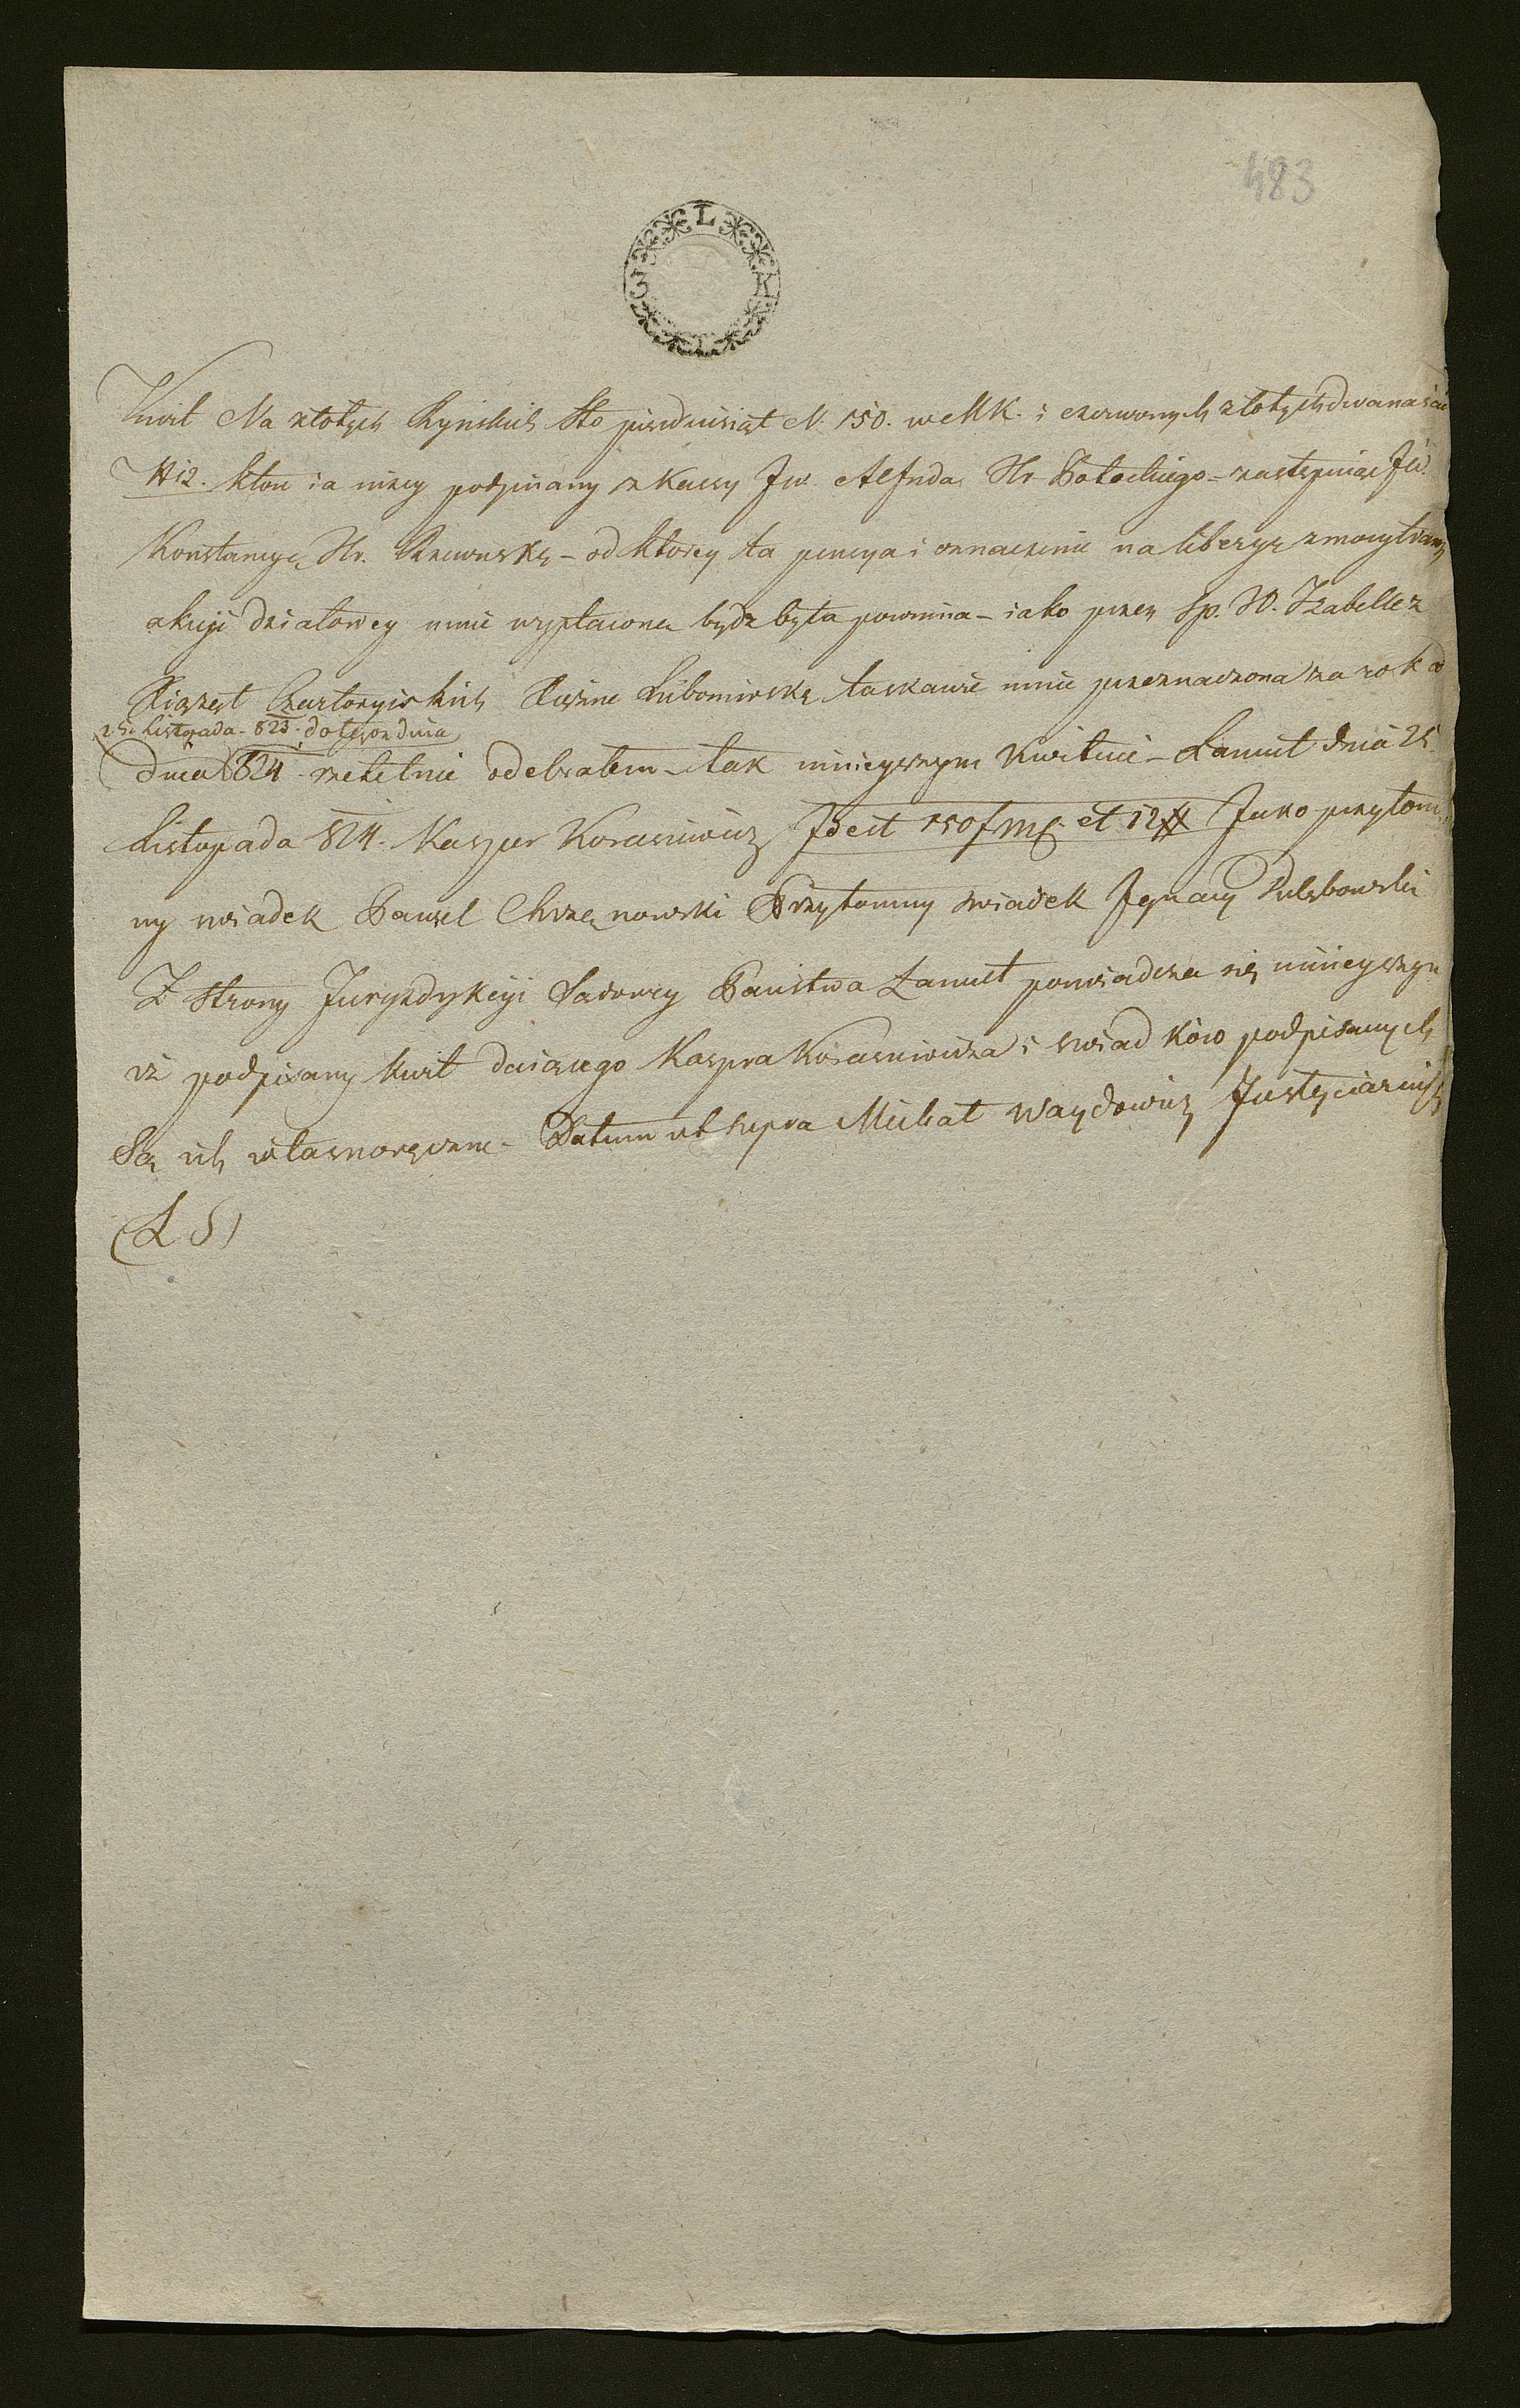 483
L
3 K
Kwit Na złotych Ryńskich Sto pięcdziesiąt N. 150. w MK. i czerwonych złotych dwanaście
# 12. ktore ia niżey podpisany z Kassy Jw. Alfreda Hr. Potockiego - zastępuiąc Jw.
Konstancyę Hr. Rzewuską - od ktorey ta pensya i oznaczenie na liberyę z mocy
akcyi działowey mnie wypłacona bydz była powinna - iako przez Sp. JO. Izabellę z
Xiążąt Czartoryiskich Xiężnę Lubomirską łaskawie mnie przeznaczona za rok od
25. Listopada - 823 - do tegoz dnia
dnia 824 - rzetelnie odebrałem - tak ninieyszym kwituię - Łancut dnia 25.
Listopada 824. Kasper Korasiewicz Id est 150 f mC et 12 # Jako przytom
ny swiadek Paweł Chrzanowski Przytomny swiadek Ignacy
Z Strony Juryzdykcyi Sądowey Państwa Łancut poswiadcza się ninieyszym
iż podpisany kwit daiącego Kaspra Korasiewicza i swiadków podpisanych
Są ich własnoręczne - Datum ut supra Michał Waydowicz Justyciariusz
(L S)